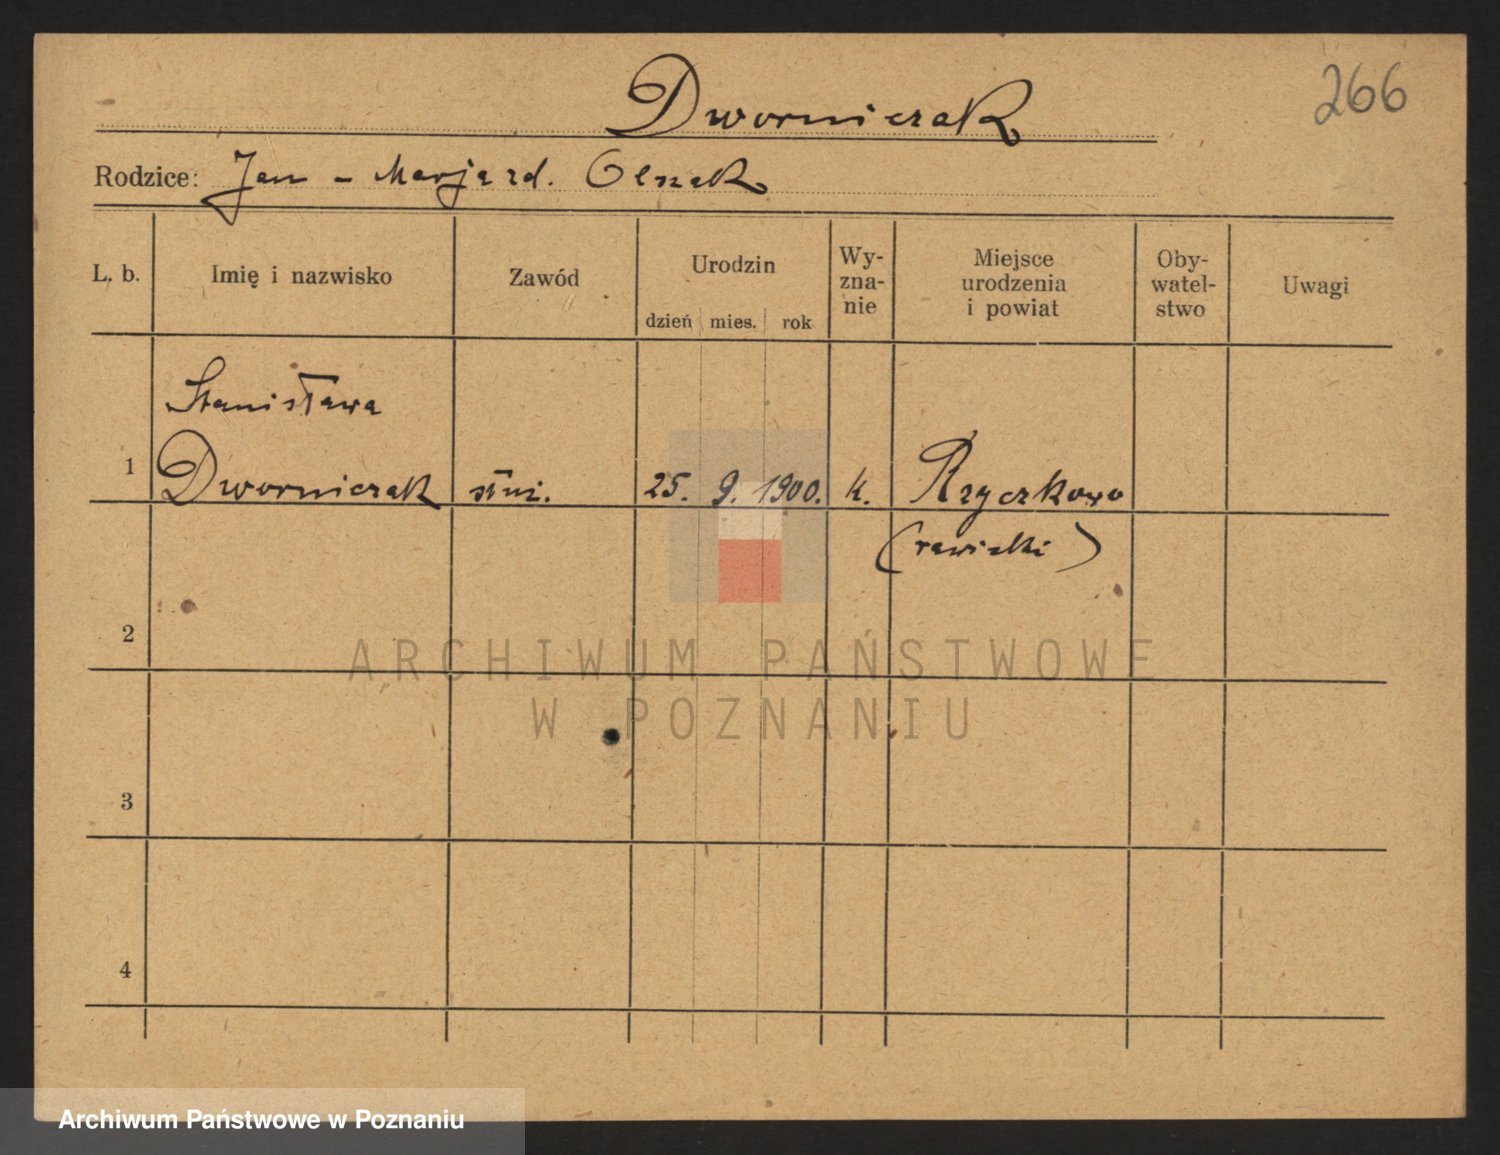 266
Dworniczak
Rodzice: Jan - Marja zd. Olszak
L. b.
Imię i nazwisko
Zawód
Urodzin
dzień mies. rok
Wy-
zna-
nie
Miejsce
urodzenia
i powiat
Oby-
watel-
stwo
Uwagi
Stanisława
1 Dworniczak służ. 25. 9. 1900. k. Rzyczkowo
(rawicki)
2
3
4
ARCHIWUM PAŃSTWOWE
W POZNANIU
Archiwum Państwowe w Poznaniu